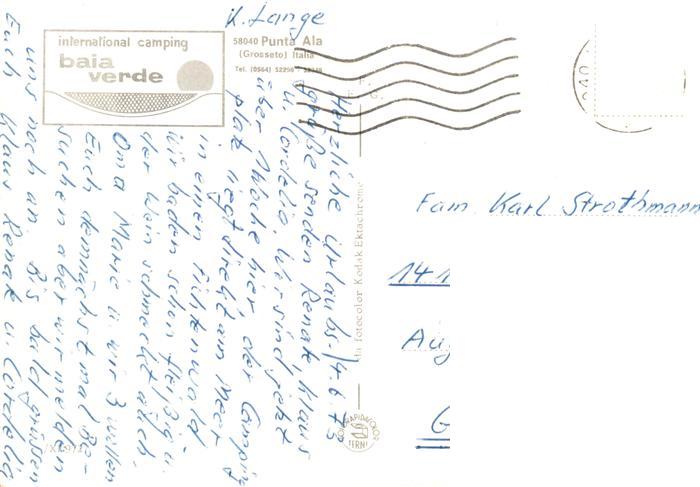 K. Lange
international camping
baia
verde
58040 Punta Ala
(Grosseto) Italia
Tel. (0564) 52298
14.6.73
Herzliche Urlaubs-
grüße senden Renate, Klaus
u. Cordelia. Wir sind jetzt
über Woche hier. der Camping
platz liegt direkt am Meer
in einen Fichtenwald
Wir baden schon fleißig u.
der Wein schmeckt auch.
Oma Marie u. wir 3 wollen
Euch demnächst mal Be-
suchen aber wir melden
uns noch an. Bis bald grüssen
Euch Klaus Renate u. Cordelia
Fam. Karl Strothmann
fotocolor Kodak Ektachrome
TERNI